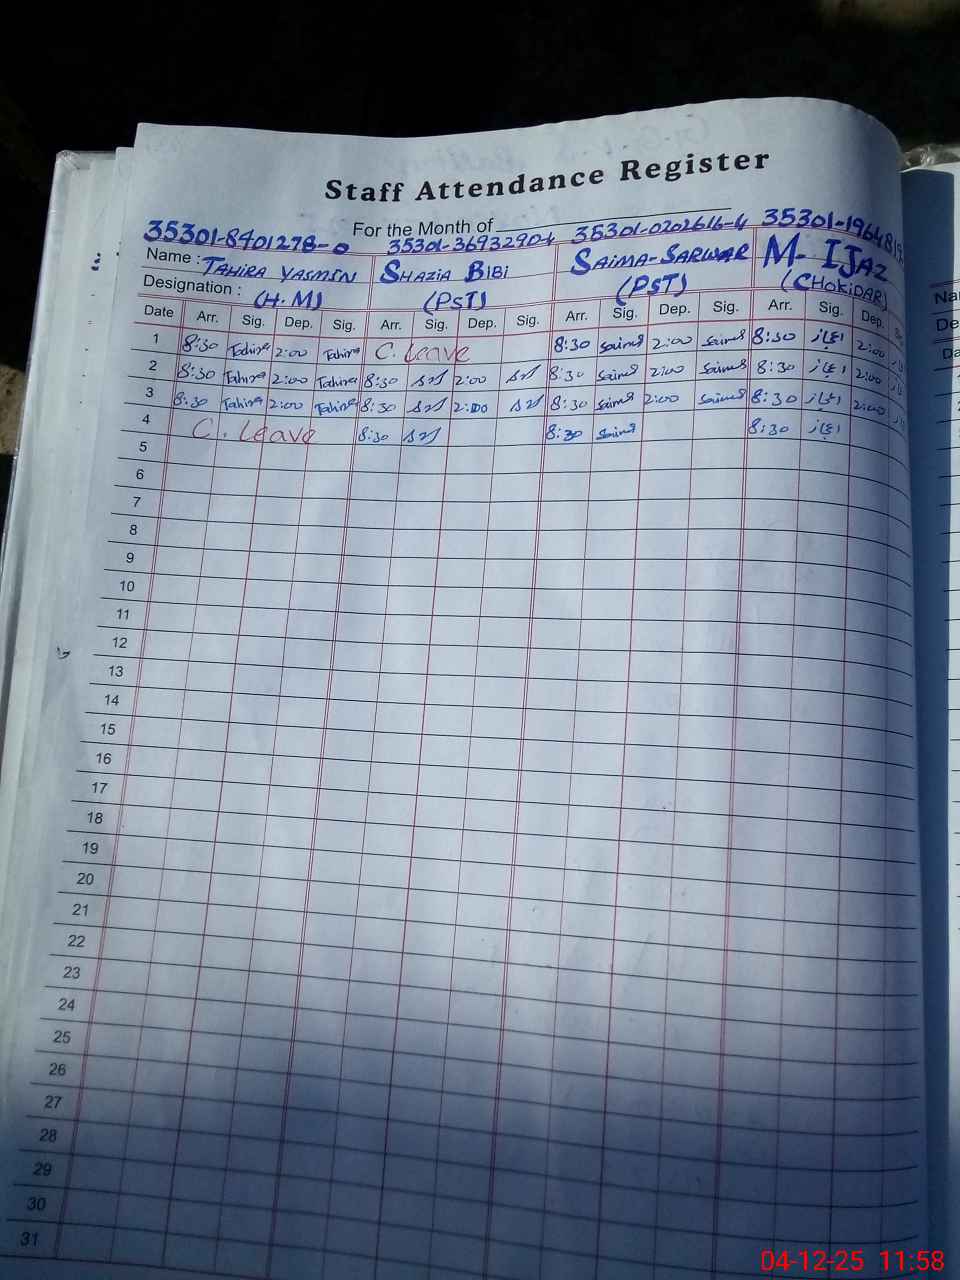 Staff Attendance Register
For the Month of
35301-8401278-0 35301-3693290-4 35301-0202616-4 35301-19648
Name : TAHIRA YASMIN SHAZIA BIBI SAIMA-SARWAR M- IJAZ
Designation : (H.M) (PST) (PST) (CHOKIDAR)
Date Arr. Sig. Dep. Sig. Arr. Sig. Dep. Sig. Arr. Sig. Dep. Sig. Arr. Sig. Dep.
1 8:30 Tahira 2:00 Tahira C. Leave 8:30 Saima 2:00 Saima 8:30 اعجاز 2:00
2 8:30 Tahira 2:00 Tahira 8:30 2:00 8:30 Saima 2:00 Saima 8:30 اعجاز 2:00
3 8:30 Tahira 2:00 Tahira 8:30 2:00 8:30 Saima 2:00 Saima 8:30 اعجاز 2:00
4 C. Leave 8:30 8:30 Saima 8:30 اعجاز
5
6
7
8
9
10
11
12
13
14
15
16
17
18
19
20
21
22
23
24
25
26
27
28
29
30
31
04-12-25 11:58